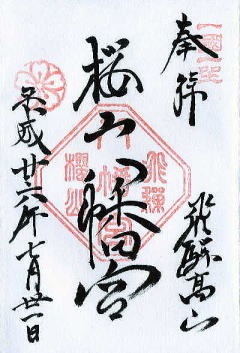 一国一社
奉拝
飛騨高山
桜山八幡宮
飛騨
八幡宮
櫻山
平成廿六年七月廿一日